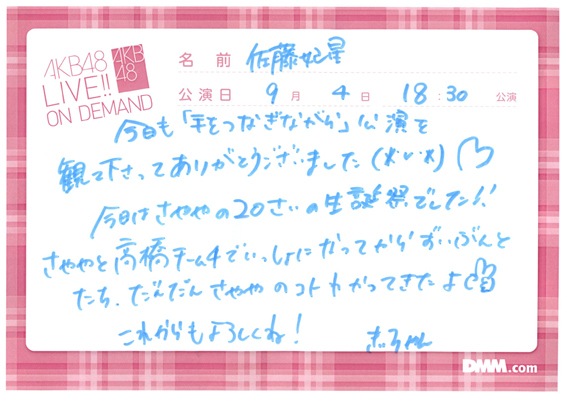 AKB48
LIVE!!
ON DEMAND
AKB
48
名 前 佐藤妃星
公演日 9 月 4 日 18:30 公演
今日も「手をつなぎながら」公演を
観て下さってありがとうございました
今日はさややの20さいの生誕祭でした!!
さややと高橋チーム4でいっしょになってからずいぶんと
たち、だんだんさややのコトわかってきたよ
これからもよろしくね!
きぃちゃん
DMM.com